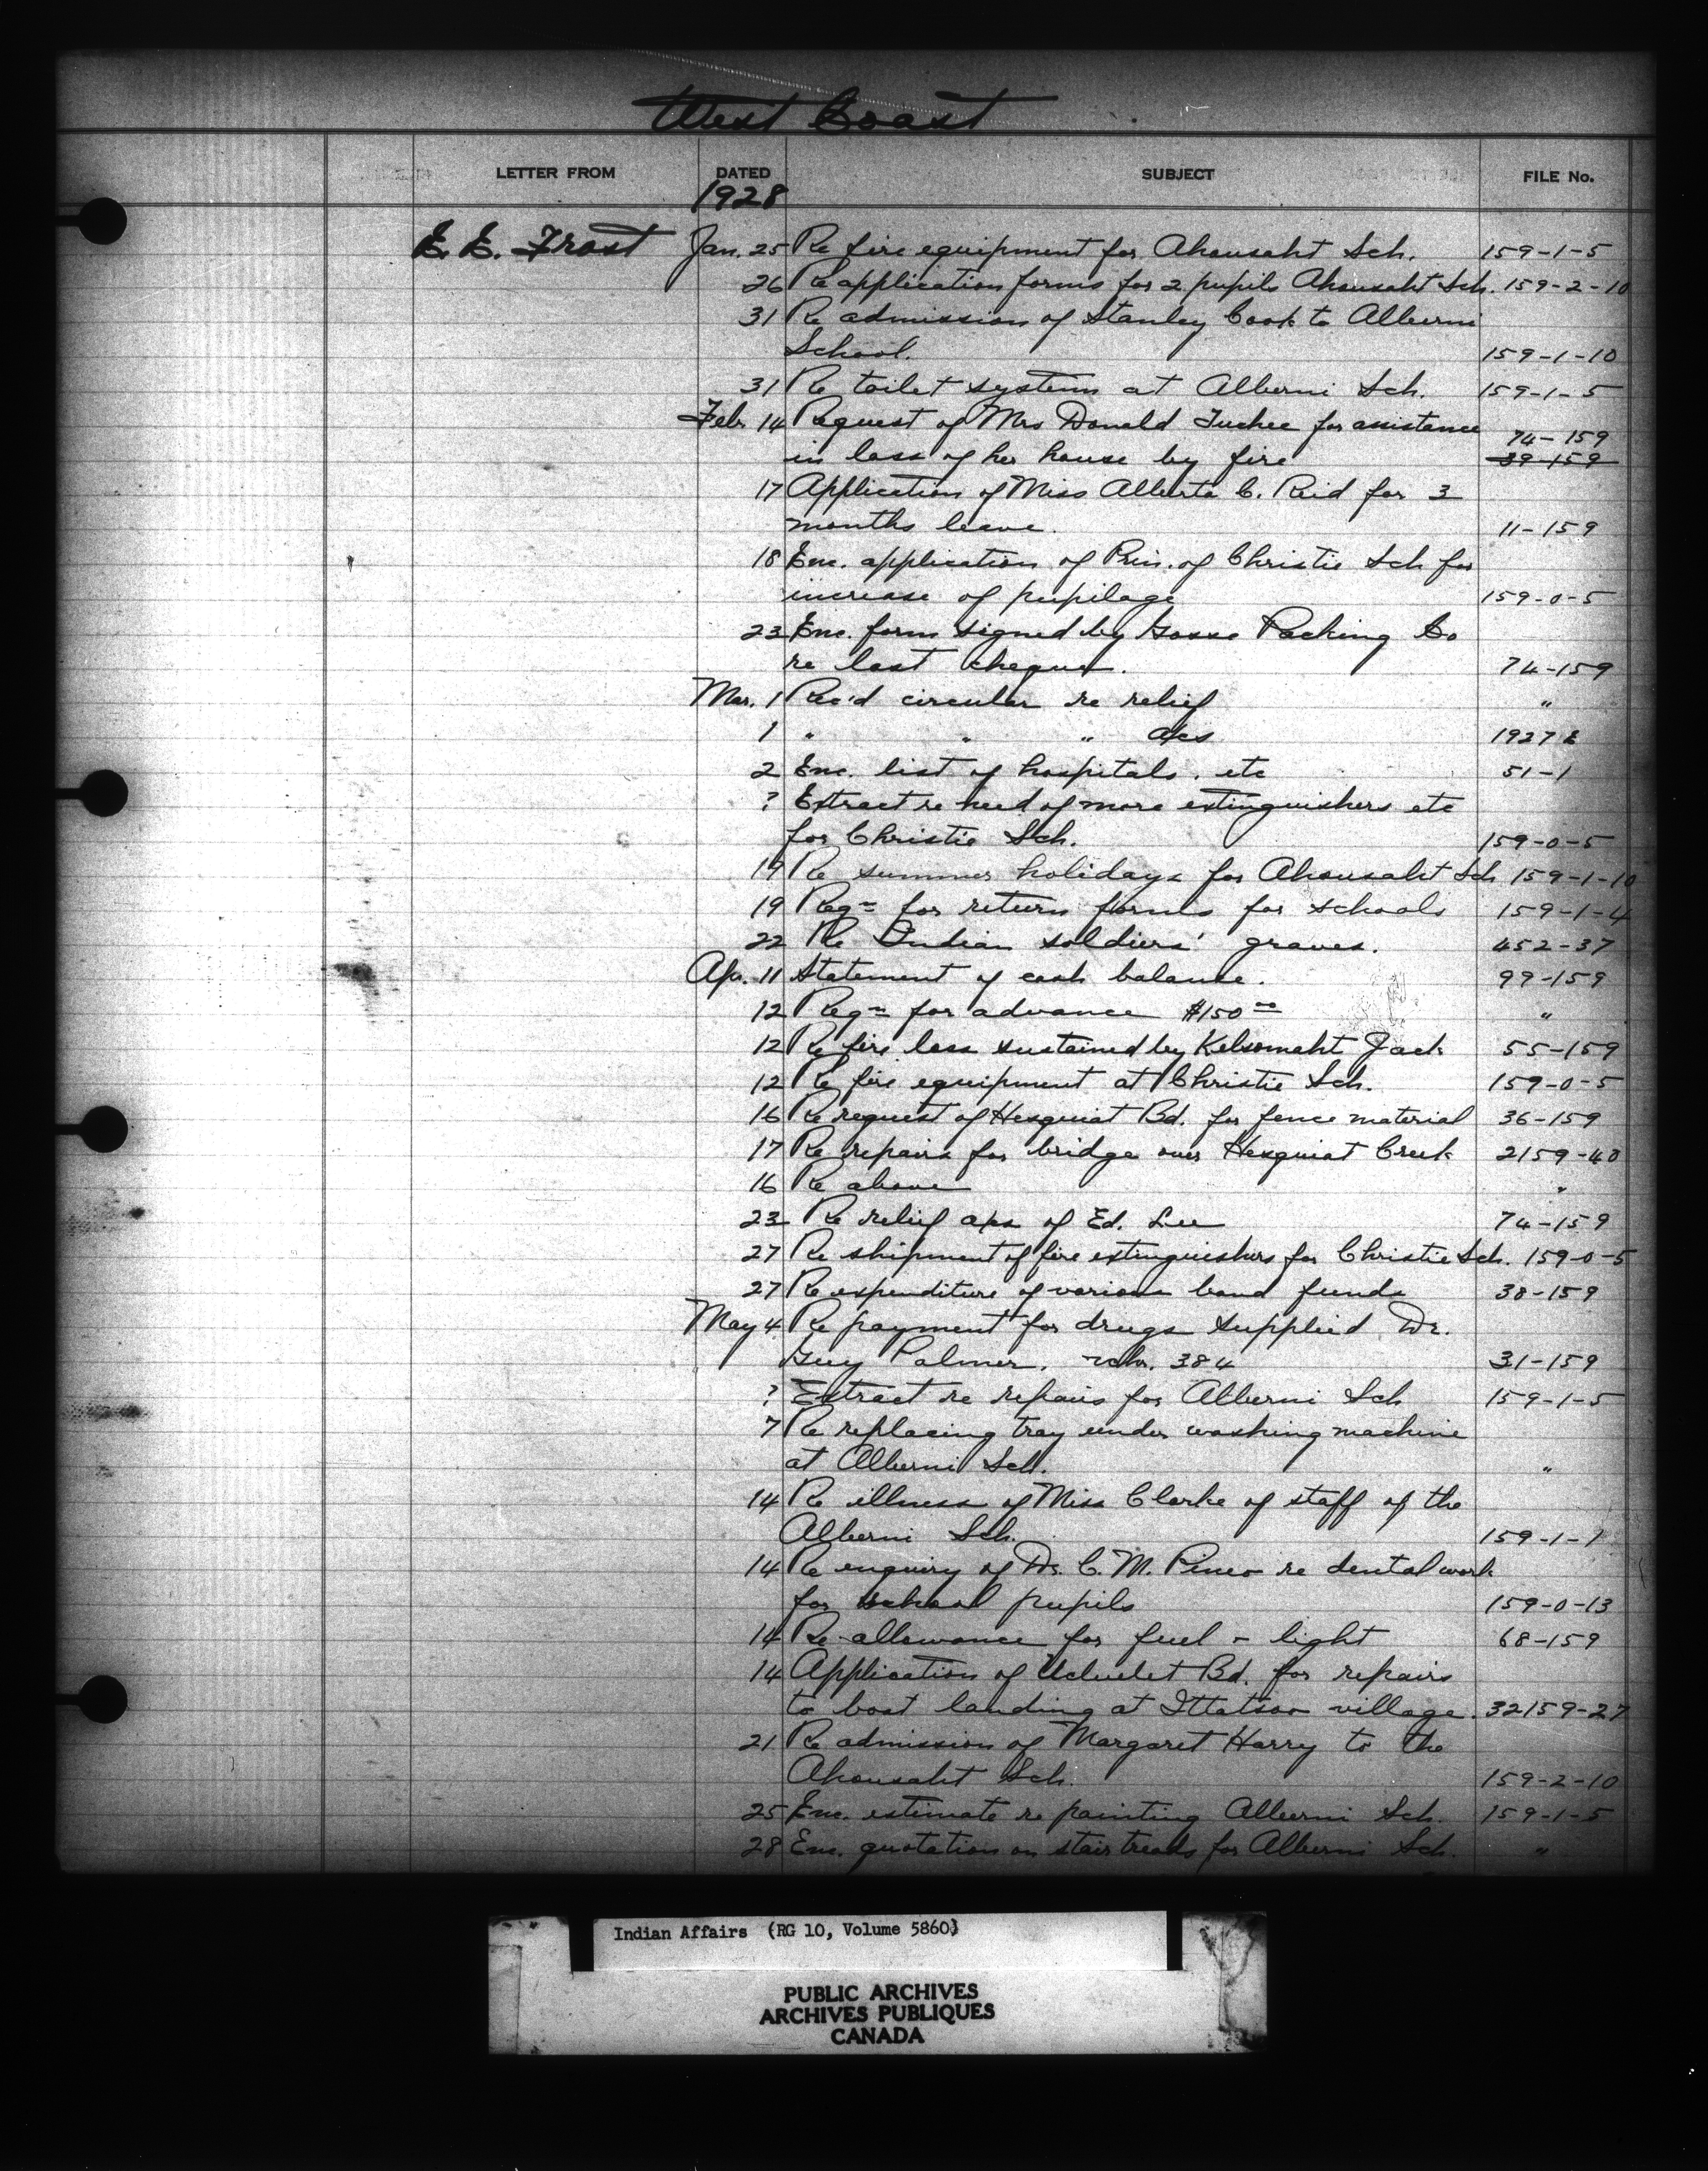 West Coast
LETTER FROM DATED SUBJECT FILE No.
1928
E. E. Frost Jan. 25 Re fire equipment for Ahousaht Sch. 159-1-5
26 Re application forms for 2 pupils Ahousaht Sch. 159-2-10
31 Re admission of Stanley Cook to Alberni
School. 159-1-10
31 Re toilet system at Alberni Sch. 159-1-5
Feb. 14 Request of Mrs Donald Tuchee for assistance 74-159
in loss of her house by fire 39-159
17 Application of Miss Alberta C. Reid for 3
months leave. 11-159
18 Enc. application of Prin. of Christie Sch for
increase of pupilage 159-0-5
23 Enc. form signed by Gosse Packing Co
re lost cheque. 74-159
Mar. 1 Rec'd circular re relief "
1 " " " a/cs 1927 E
2 Enc. list of hospitals. etc 51-1
? Extract re need of more extinguishers etc
for Christie Sch. 159-0-5
19 Re summer holidays for Ahousaht Sch 159-1-10
19 Reqn for return forms for schools 159-1-4
22 Re Indian soldiers' graves. 452-37
Apr. 11 Statement of cash balance. 99-159
12 Reqn for advance $150 00 "
12 Re fire loss sustained by Kelsomaht Jack 55-159
12 Re fire equipment at Christie Sch. 159-0-5
16 Re request of Hesquiat Bd. for fence material 36-159
17 Re repairs for bridge over Hesquiat Creek 2159-40
16 Re above "
23 Re relief a/cs of Ed. Lee 74-159
27 Re shipment of fire extinguishers for Christie Sch. 159-0-5
27 Re expenditure of various band funds 38-159
May 4 Re payment for drugs supplied Dr.
Guy Palmer. vchr. 384 31-159
? Extract re repairs for Alberni Sch 159-1-5
7 Re replacing tray under washing machine
at Alberni Sch. "
14 Re illness of Miss Clarke of staff of the
Alberni Sch. 159-1-1
14 Re enquiry of Dr. C. M. Pineo re dental work
for school pupils 159-0-13
14 Re allowance for fuel & light 68-159
14 Application of Ucluelet Bd. for repairs
to boat landing at Ittatsoo village. 32159-27
21 Re admission of Margaret Harry to the
Ahousaht Sch. 159-2-10
25 Enc. estimate re painting Alberni Sch. 159-1-5
28 Enc. quotation on stair treads for Alberni Sch. "
Indian Affairs (RG 10, Volume 5860)
PUBLIC ARCHIVES
ARCHIVES PUBLIQUES
CANADA